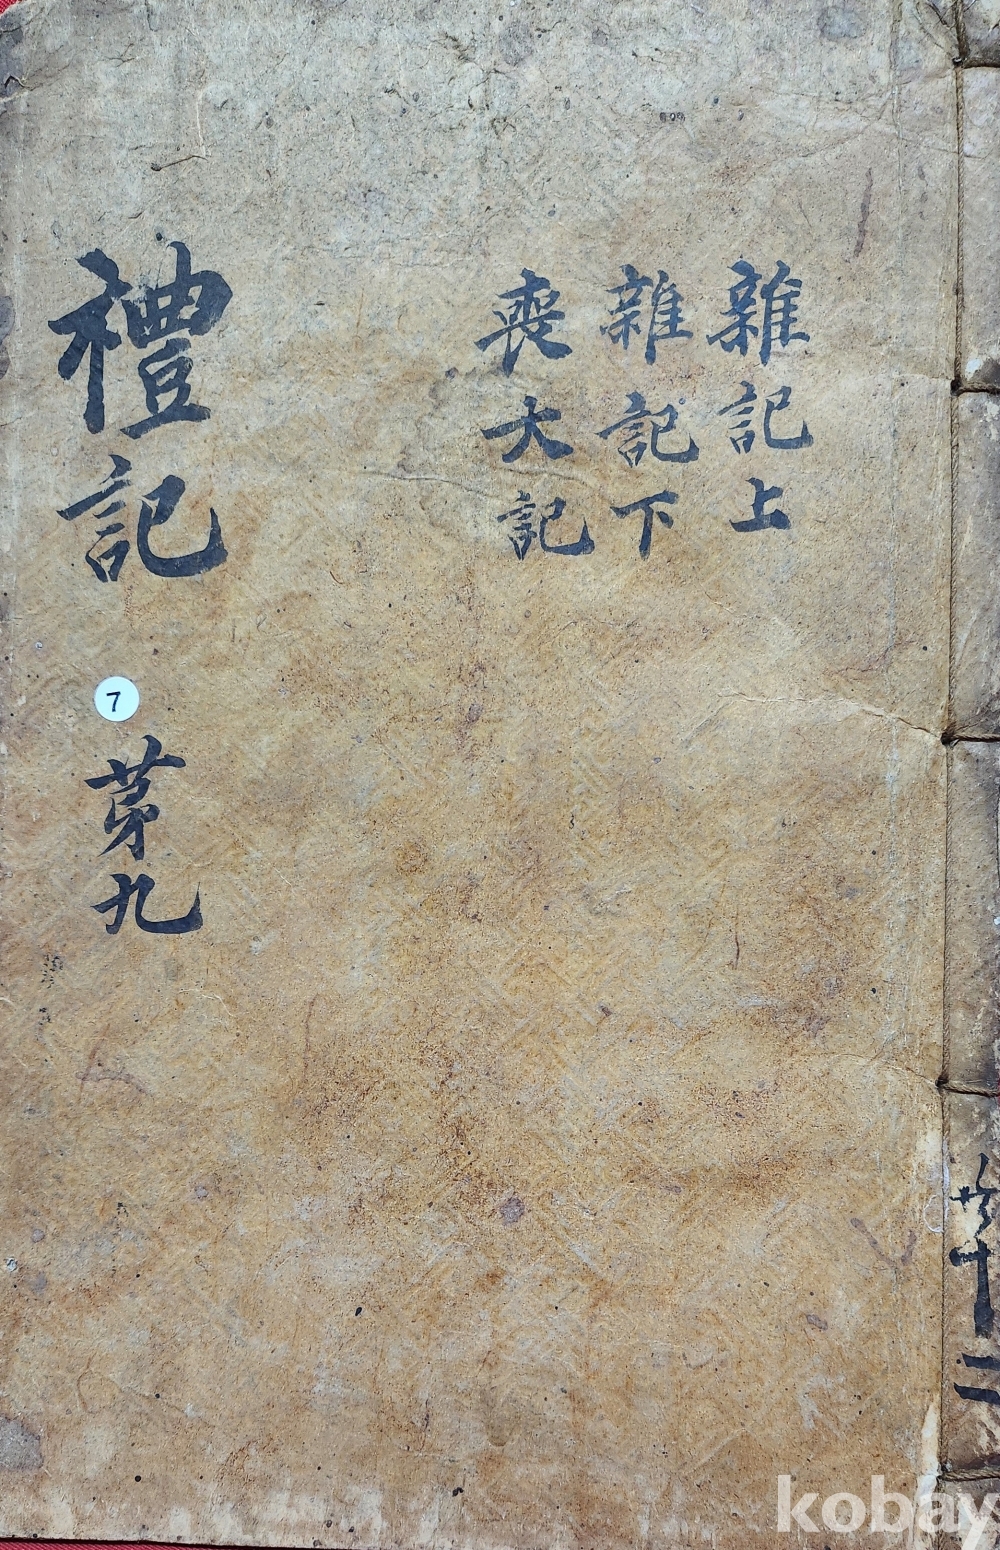 雜記上
雜記下
喪大記
禮記
7
第九
共十二
kobay